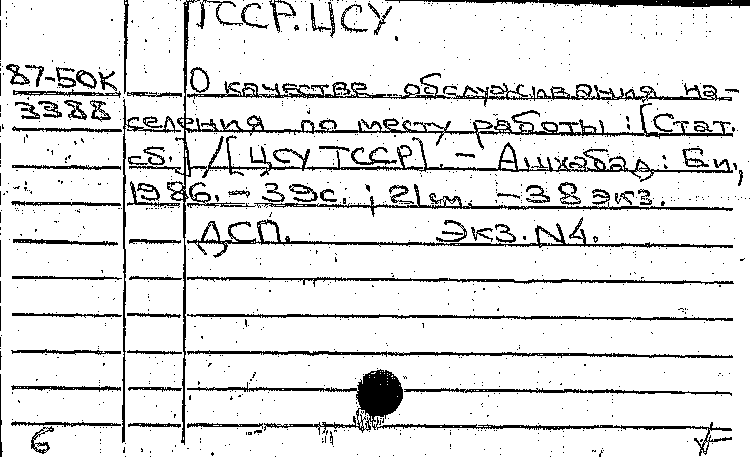 ТССР. ЦСУ.
87-50К О качестве обслуживания на-
3388 селения по месту работы : [Стат.
сб.] / [ЦСУ ТССР]. - Ашхабад : Б.и.,
1986. - 39с. ; 21см. - 38 экз.
ДСП. Экз. N4.
6